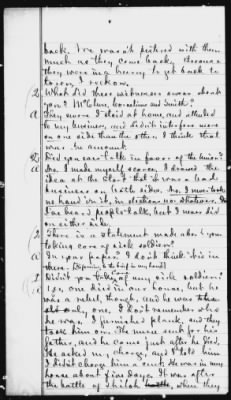 back. I've wasn't pestered with them
much as they come back, because
they were in a hurry to get back to
town, I reckon.
Q What did these witnesses swear about
you? McClure, Cornelius and Smith?
A They swore I staid at home, and attended
to my business, and didn't interfere more
on one side than the other, I think that
was the amount.
Q Did you ever talk in favor of the Union?
A No, I made myself scarce, I drawed the
idea at the start that it was a bad
business on both sides. So, I never took
no hand in it, in
I've heard people talk, but I never did
on either side.
Q There is a statement made about your
taking care of sick soldiers?
A In your papers? I don't think this in
there.
Q Didn't you take care of any sick soldiers?
A Yes, one died in our house, but he
was a rebel, though, and he was
only, one. I don't remember who
he was, I furnished plank, and they
took him on. The man sent for his
father, and he came just after he died.
He asked my charge, and I told him
I didn't charge him a cent. He was in my
house about six days. It was after
the battle of Shiloh when they